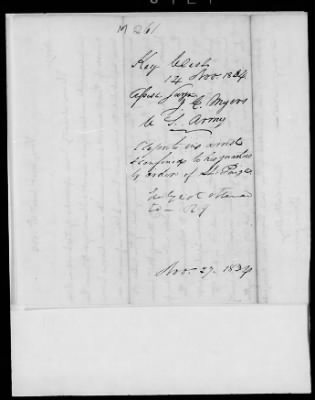 M 261
Key West
14 Nov. 1834
Asst Surgn
J. C. Myers
U S. Army
Reports his arrest
& confined to his quarters
by order of Lt. Paige
Nov. 27. 1834